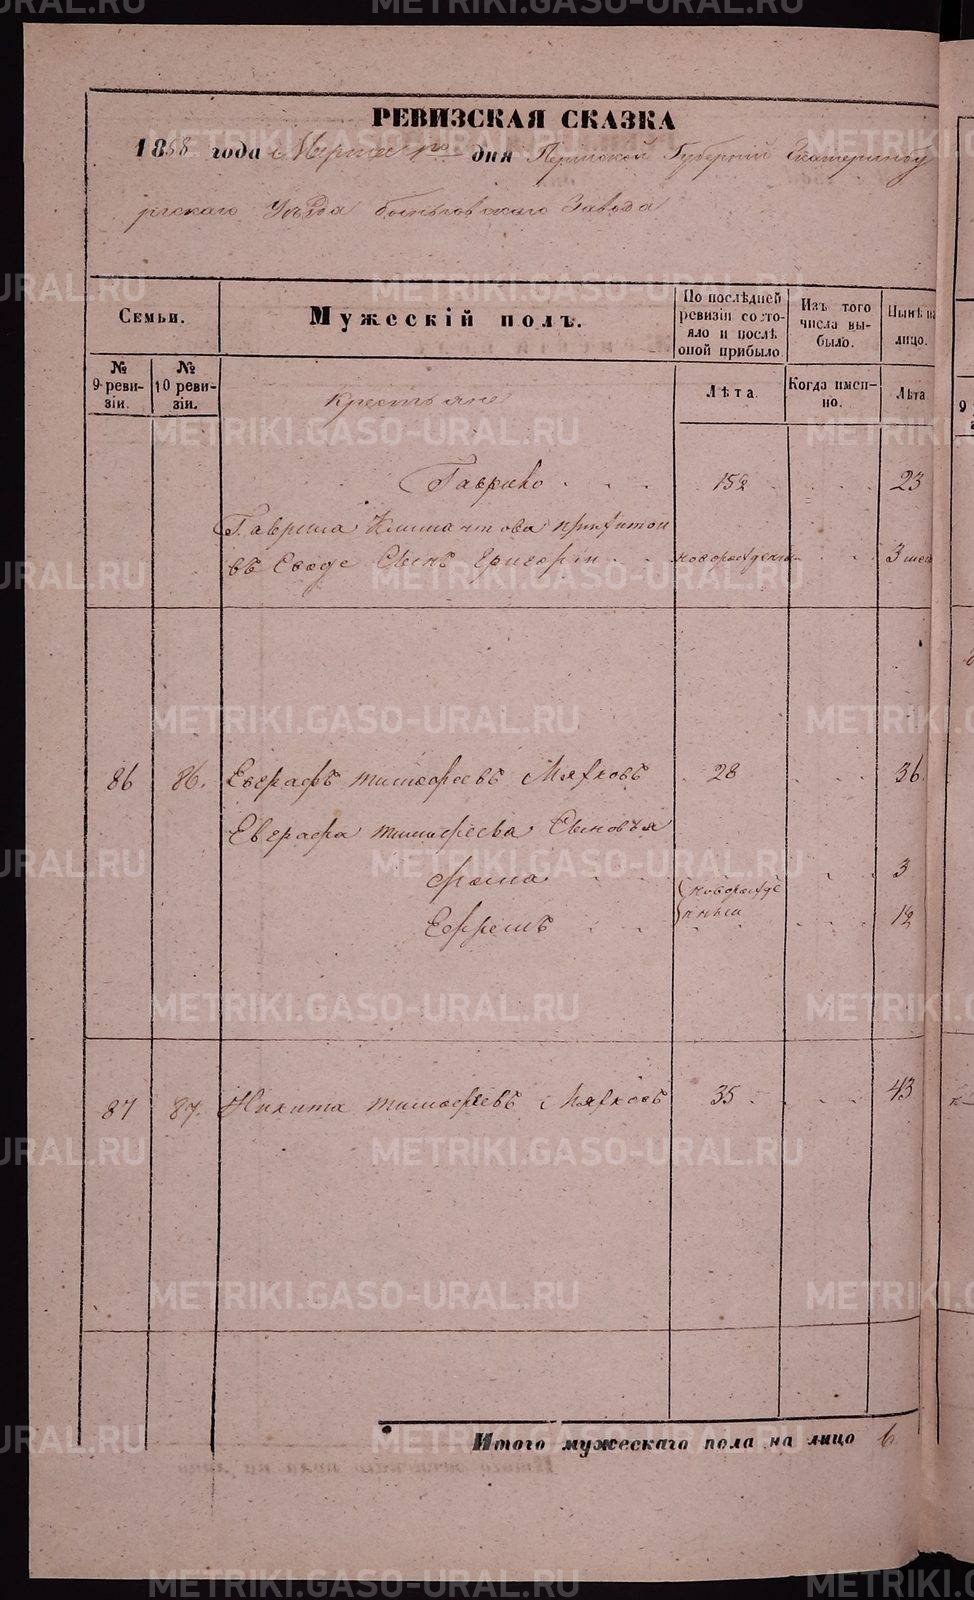 РЕВИЗСКАЯ СКАЗКА
1858 года Марта 1го дня Пермской Губернiи Екатеринбу
ргскаго Уезда Быньговскаго Завода
Семьи.
Мужескiй полъ.
По послѣдней ревизiи состояло и послѣ оной прибыло.
Изъ того числа выбыло.
Нынѣ на лицо.
№ 9-ревизiи.
№ 10 ревизiи.
Лѣта.
Когда именно.
Лѣта
Крестьяне
Гаврило 15½ 23
Гаврила
въ Сынъ Григорiй новорожденный 3 мес
86 86. Евграфъ Тимофеевъ Мяхковъ 28 36
Евграфа Тимофеева Сыновья
Фома 3
новорожде
нныи
Ефремъ ½
87 87. Никита Тимофеевъ Мяхковъ 35 43
Итого мужескаго пола на лицо 6
METRIKI.GASO-URAL.RU